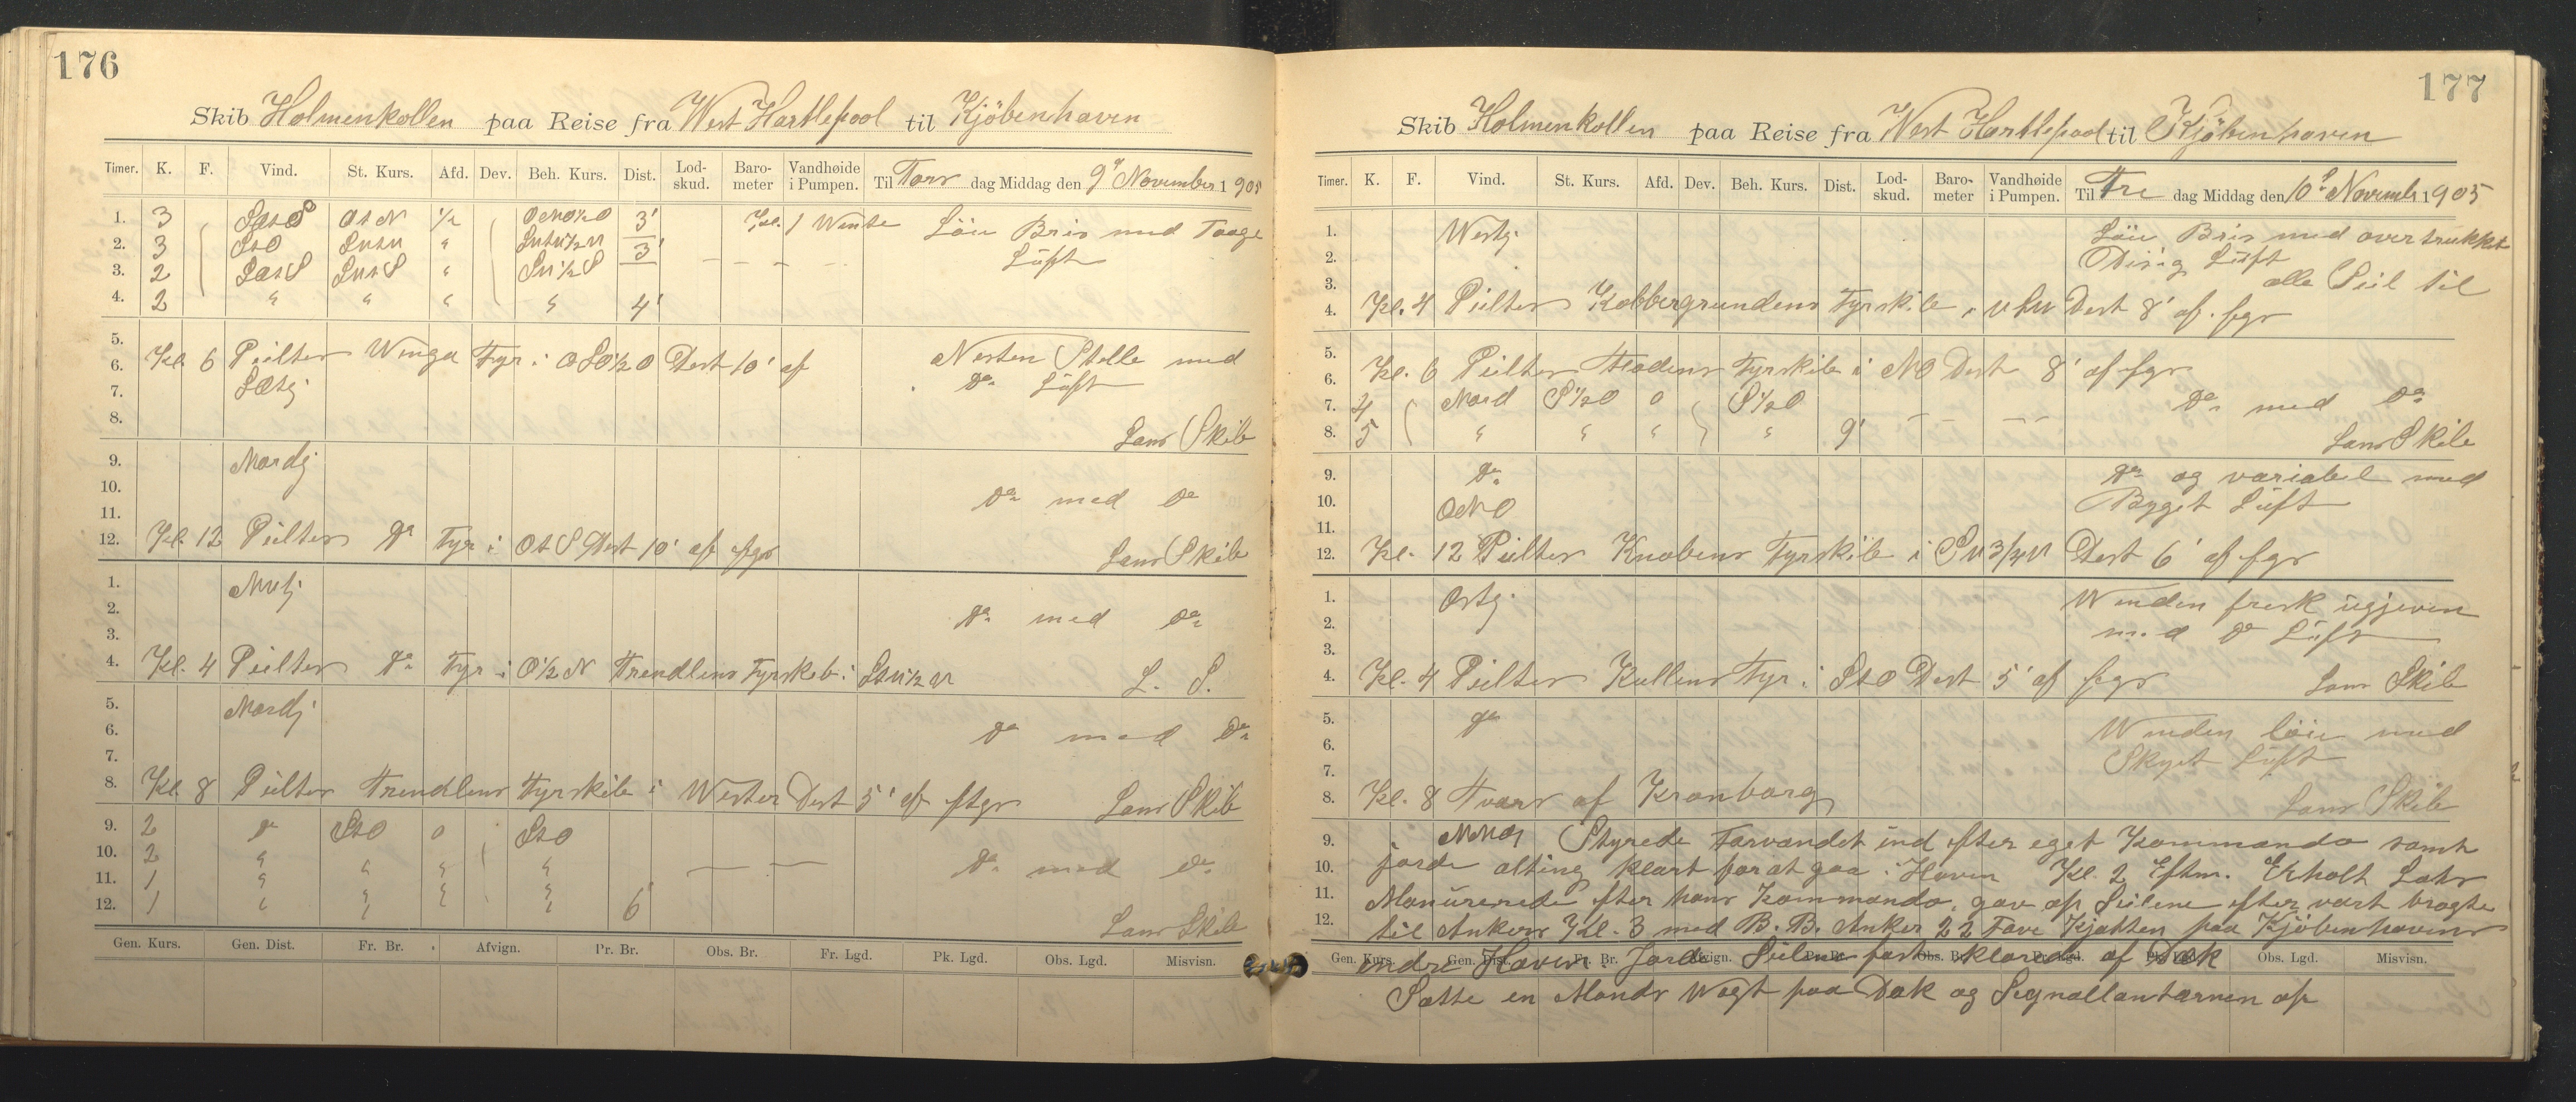 176
Skib Holmenkollen paa Reise fra West Hartlepool til Kjöbenhaven
Timer. K. F. Vind. St. Kurs. Afd. Dev. Beh. Kurs. Dist. Lod-skud. Baro-meter Vandhøide i Pumpen. Til Tors dag Middag den 9de November 1905
1. 3 OtN 1/2 3' Kl. 1 Wente Löie Bris med Taage
2. 3 StO " 3' Luft
3. 2 "
4. 2 " " " " 4'
5.
6. Kl. 6 Peiltes Winga Fyr i OSO1/2O Dest 10' af Nesten Stelle med
7. Do Luft
8. Lans Skib
9. Nordj
10. Do med Do
11.
12. Kl. 12 Peiltes Do Fyr i OtS Dest 10' af fgr Lans Skib
1. NVtj
2. Do med Do
3.
4. Kl. 4 Peiltes Do Fyr i O1/2N Trendlens Fyrskib i L. S.
5. Nordj
6. Do med Do
7.
8. Kl. 8 Peiltes Trendlens Fyrskib i Wester Dest 5' af ftgr Lans Skib
9. 2 Do StO 0 StO
10. 2 " " " " Do med Do
11. 1 " " " "
12. 1 " " " 6' Lans Skib
Gen. Kurs. Gen. Dist. Fr. Br. Afvign. Pr. Br. Obs. Br. Fr. Lgd. Pk. Lgd. Obs. Lgd. Misvisn.
177
Skib Holmenkollen paa Reise fra West Hartlepool til Kjöbenhaven
Timer. K. F. Vind. St. Kurs. Afd. Dev. Beh. Kurs. Dist. Lod-skud. Baro-meter Vandhøide i Pumpen. Til Fre dag Middag den 10de Novemb 1905
1. Westj. Löie Bris med overtrukket
2. Disig Luft
3. alle Seil til
4. Kl. 4 Peiltes Kobbergrundens Fyrskib i VSV Dest 8' af fgr
5.
6. Kl. 6 Peiltes Fladens Fyrskib i NO Dest 8' af fgr
7. 4 Nord S1/2O 0 S1/2O Do med Do
8. 5 " " " " 9' Lans Skib
9. Do Do og variabel med
10. ONO Bygget Luft
11.
12. Kl. 12 Peiltes Knobens Fyrskib i SV3/4V Dest 6' af fgr
1. Ostj. Winden fresk ügjeven
2. med Do Luft
3.
4. Kl. 4 Peiltes Kullens Fyr i StO Dest 5' af fgr Lans Skib
5. Do Winden löie med
6. Skyet Luft
7.
8. Kl. 8 Tvars af Kronborg Lans Skib
9. Styrede Farvandet ind efter eget Kommando samt
10. jorde alting klart for at gaa i Haven Kl. 2 Eftm. Erholt Lots
11. Manürerede efter hans Kommando, gav op Seilene efter vart bragte
12. til Ankers Kl. 3 med B. B. Anker 22 Favn Kjetten paa Kjöbenhavens
Gen. Kurs. Gen. Dist. Fr. Br. Afvign. Pr. Br. Obs. Br. Fr. Lgd. Pk. Lgd. Obs. Lgd. Misvisn.
indre Haven. Jorde Seilene fast klarede af Dæk
Satte en Mands Wagt paa Dæk og Segnallanternen op